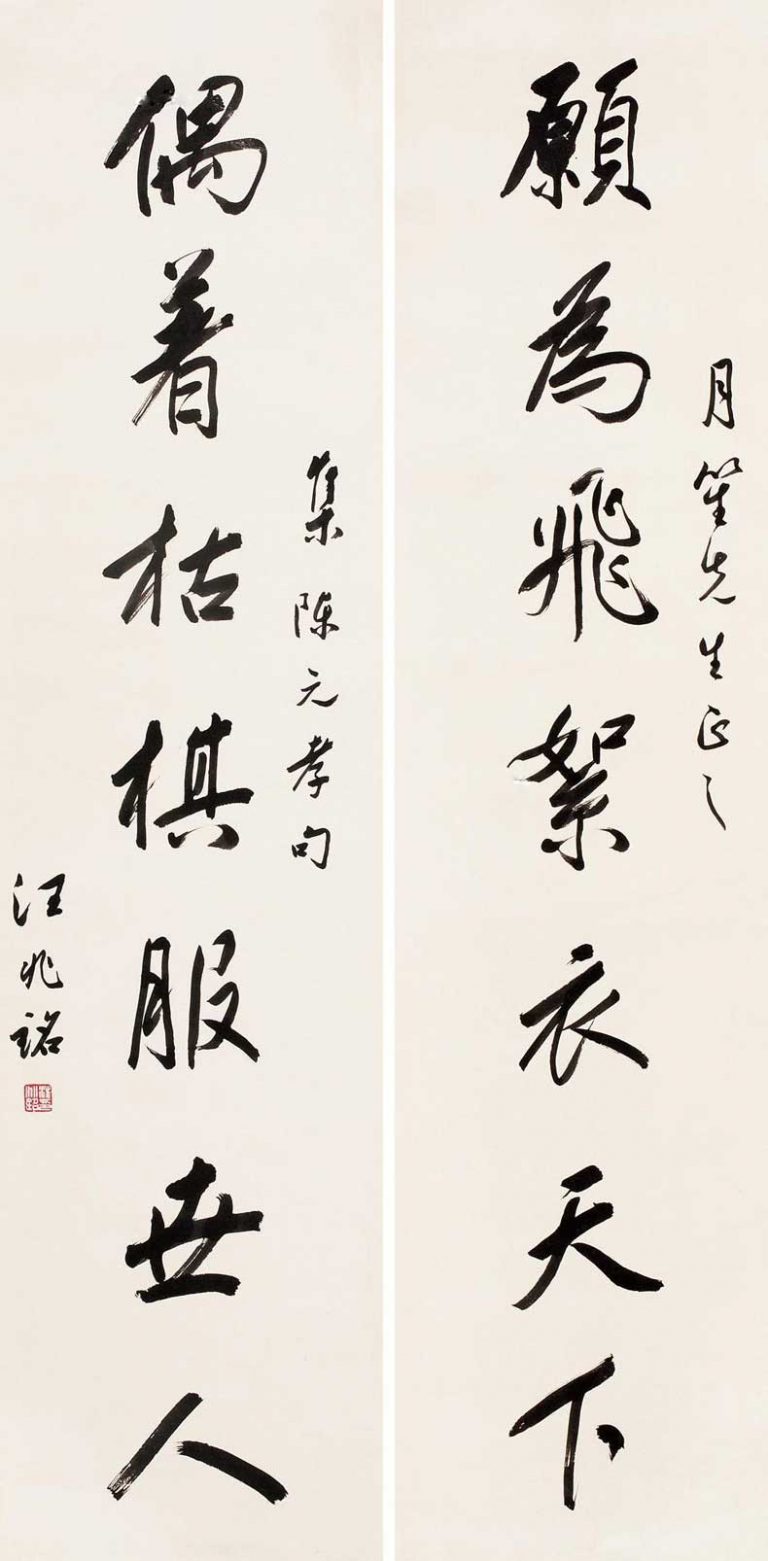 月笙先生正之
願為飛絮衣天下
集陳元孝句
偶着枯棋服世人
汪兆銘